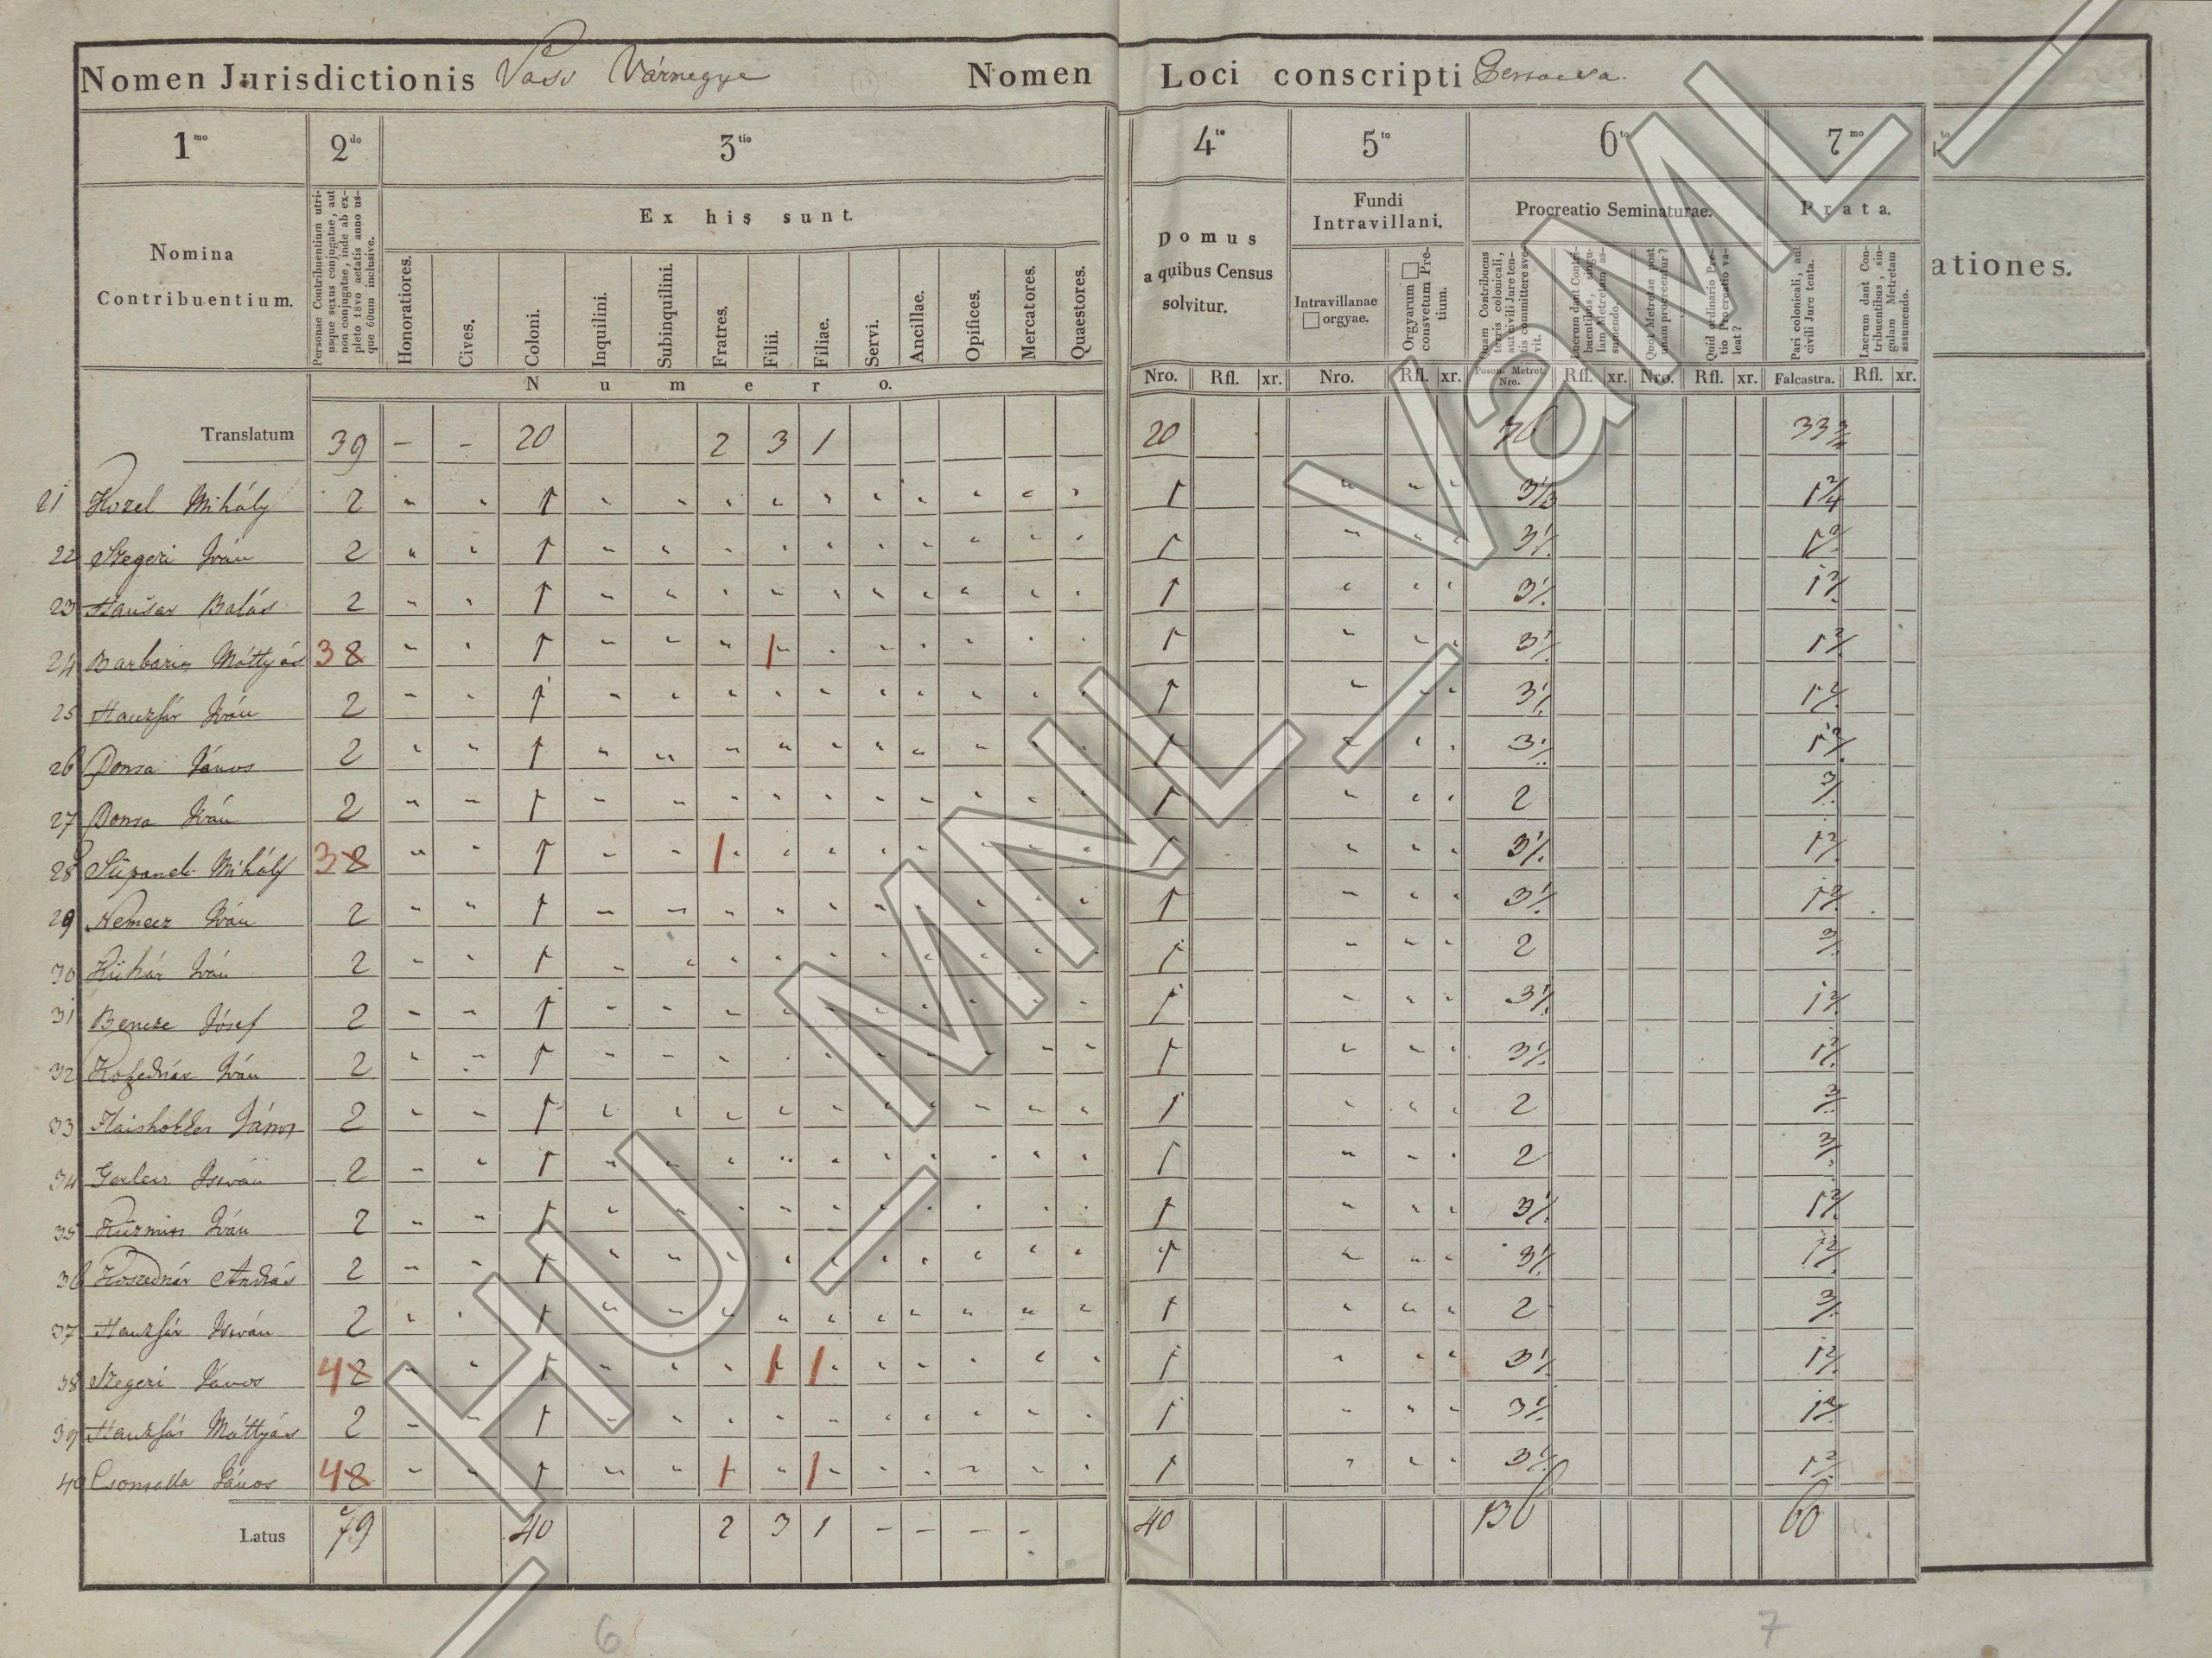 Nomen Jurisdictionis Vass Vármegye Nomen Loci conscripti
1mo 2do 3tio 4to 5to 6to 7mo
Nomina Contribuentium.
Personae Contribuentium utriusque sexus conjugatae, aut non conjugatae, inde ab expleto 18vo aetatis anno usque 60um inclusive.
Ex his sunt.
Honoratiores. Cives. Coloni. Inquilini. Subinquilini. Fratres. Filii. Filiae. Servi. Ancillae. Opifices. Mercatores. Quaestores.
Numero.
Domus a quibus Census solvitur.
Fundi Intravillani.
Intravillanae □ orgyae.
Orgyarum □ consvetum Pretium.
Procreatio Seminaturae.
Quam Contribuens terris colonicali- aut civili Jure tentis committere svevit.
Lucrum dant Contribuentibus, singulam Metretam assumendo.
Quot Metretae post unam procreentur?
Quid ordinario Pretio Procreatio valeat?
Prata.
Pari colonicali, aut civili Jure tenta.
Lucrum dant Contribuentibus, singulam Metretam assumendo.
ationes.
Nro. Rfl. xr. Nro. Rfl. xr. Poson. Metret. Nro. Rfl. xr. Nro. Rfl. xr. Falcastra. Rfl. xr.
Translatum 39 – – 20 2 3 1 20 33
21 Kozel Mihály 2 1 1 3 1/3 1 2/4
22 Szegeri Iván 2 1 1 3 1/. 1 2/.
23 Balás 2 1 1 3 1/. 1 2/.
24 Barbarics Máttyás 3 2 1 1 1 3 1/. 1 2/.
25 Hauzsár Iván 2 1 1 3 1/. 1 2/.
26 Donsa János 2 1 1 3 1/. 1 2/.
27 Donsa Iván 2 1 1 2 3/.
28 Mihály 3 2 1 1 1 3 1/. 1 2/.
29 Nemecz Iván 2 1 1 3 1/. 1 2/.
30 Kühár Iván 2 1 1 2 3/.
31 Bencze Jósef 2 1 1 3 1/. 1 2/.
32 Iván 2 1 1 3 1/. 1 2/.
33 János 2 1 1 2 3/.
34 István 2 1 1 2 3/.
35 Iván 2 1 1 3 1/. 1 2/.
36 András 2 1 1 3 1/. 1 2/.
37 Hauzsár István 2 1 1 2 3/.
38 Szegeri János 4 2 1 1 1 1 3 1/. 1 2/.
39 Hauzsár Máttyás 2 1 1 3 1/. 1 2/.
40 János 4 2 1 1 1 1 3 1/. 1 2/.
Latus 79 40 2 3 1 – – – – 40 136 60
6 7
HU_MNL_VaML